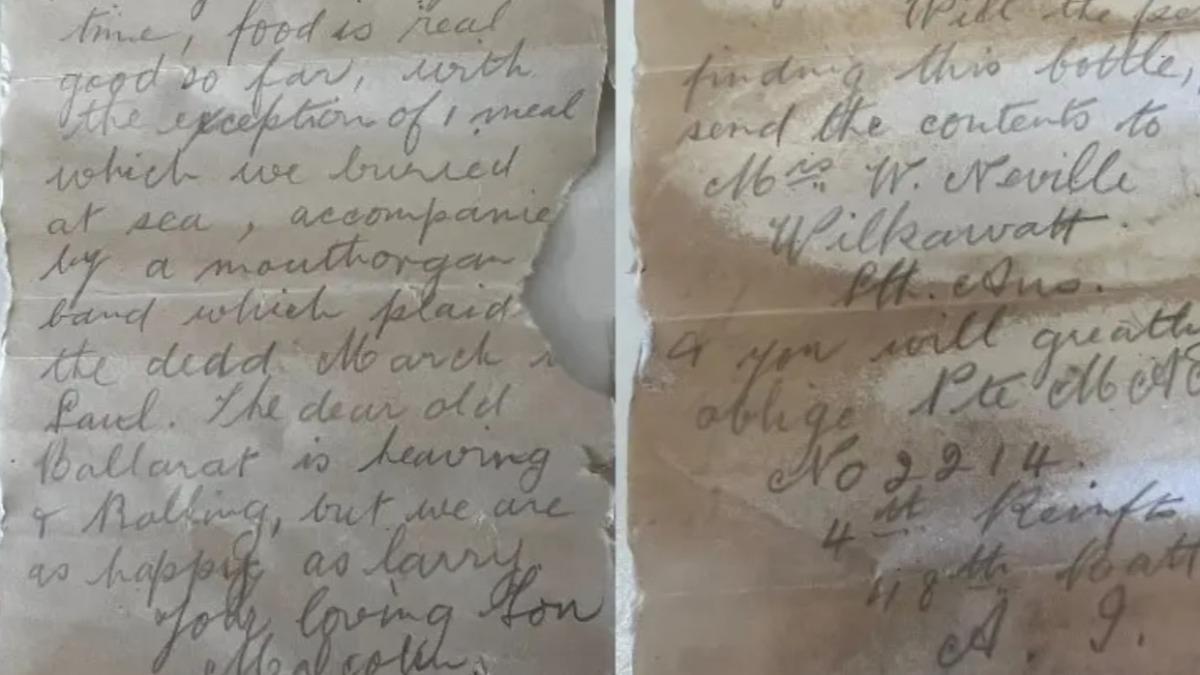 time, food is real
good so far, with
the exception of 1 meal
which we buried
at sea, accompanie
by a mouthorgan
band which plaid
the dedd March
Saul. The dear old
Ballarat is heaving
& Rolling, but we are
as happy as larry.
Your loving Son
Malcolm.
Will the pe
finding this bottle,
send the contents to
Mrs W. Neville
Wilkawatt.
Sth. Aus.
& you will greatly
oblige Pte M A
No 2214.
4th Reinfts
48th Batt
A. I.